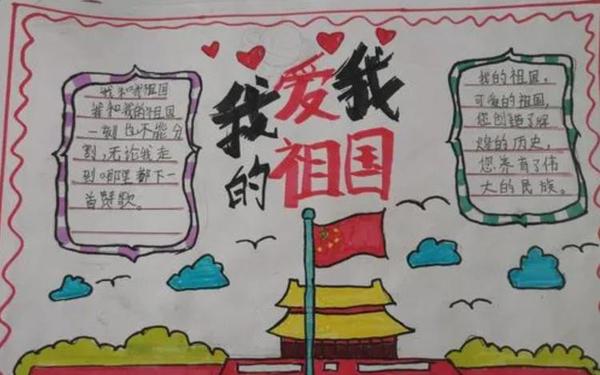 我爱我
的祖国
我和我祖国
我和我的祖国
一刻也不能分
割,无论我走
到哪里都下一
首赞歌。
我的祖国,
可爱的祖国,
您创造了辉
煌的历史,
您养育了伟
大的民族。